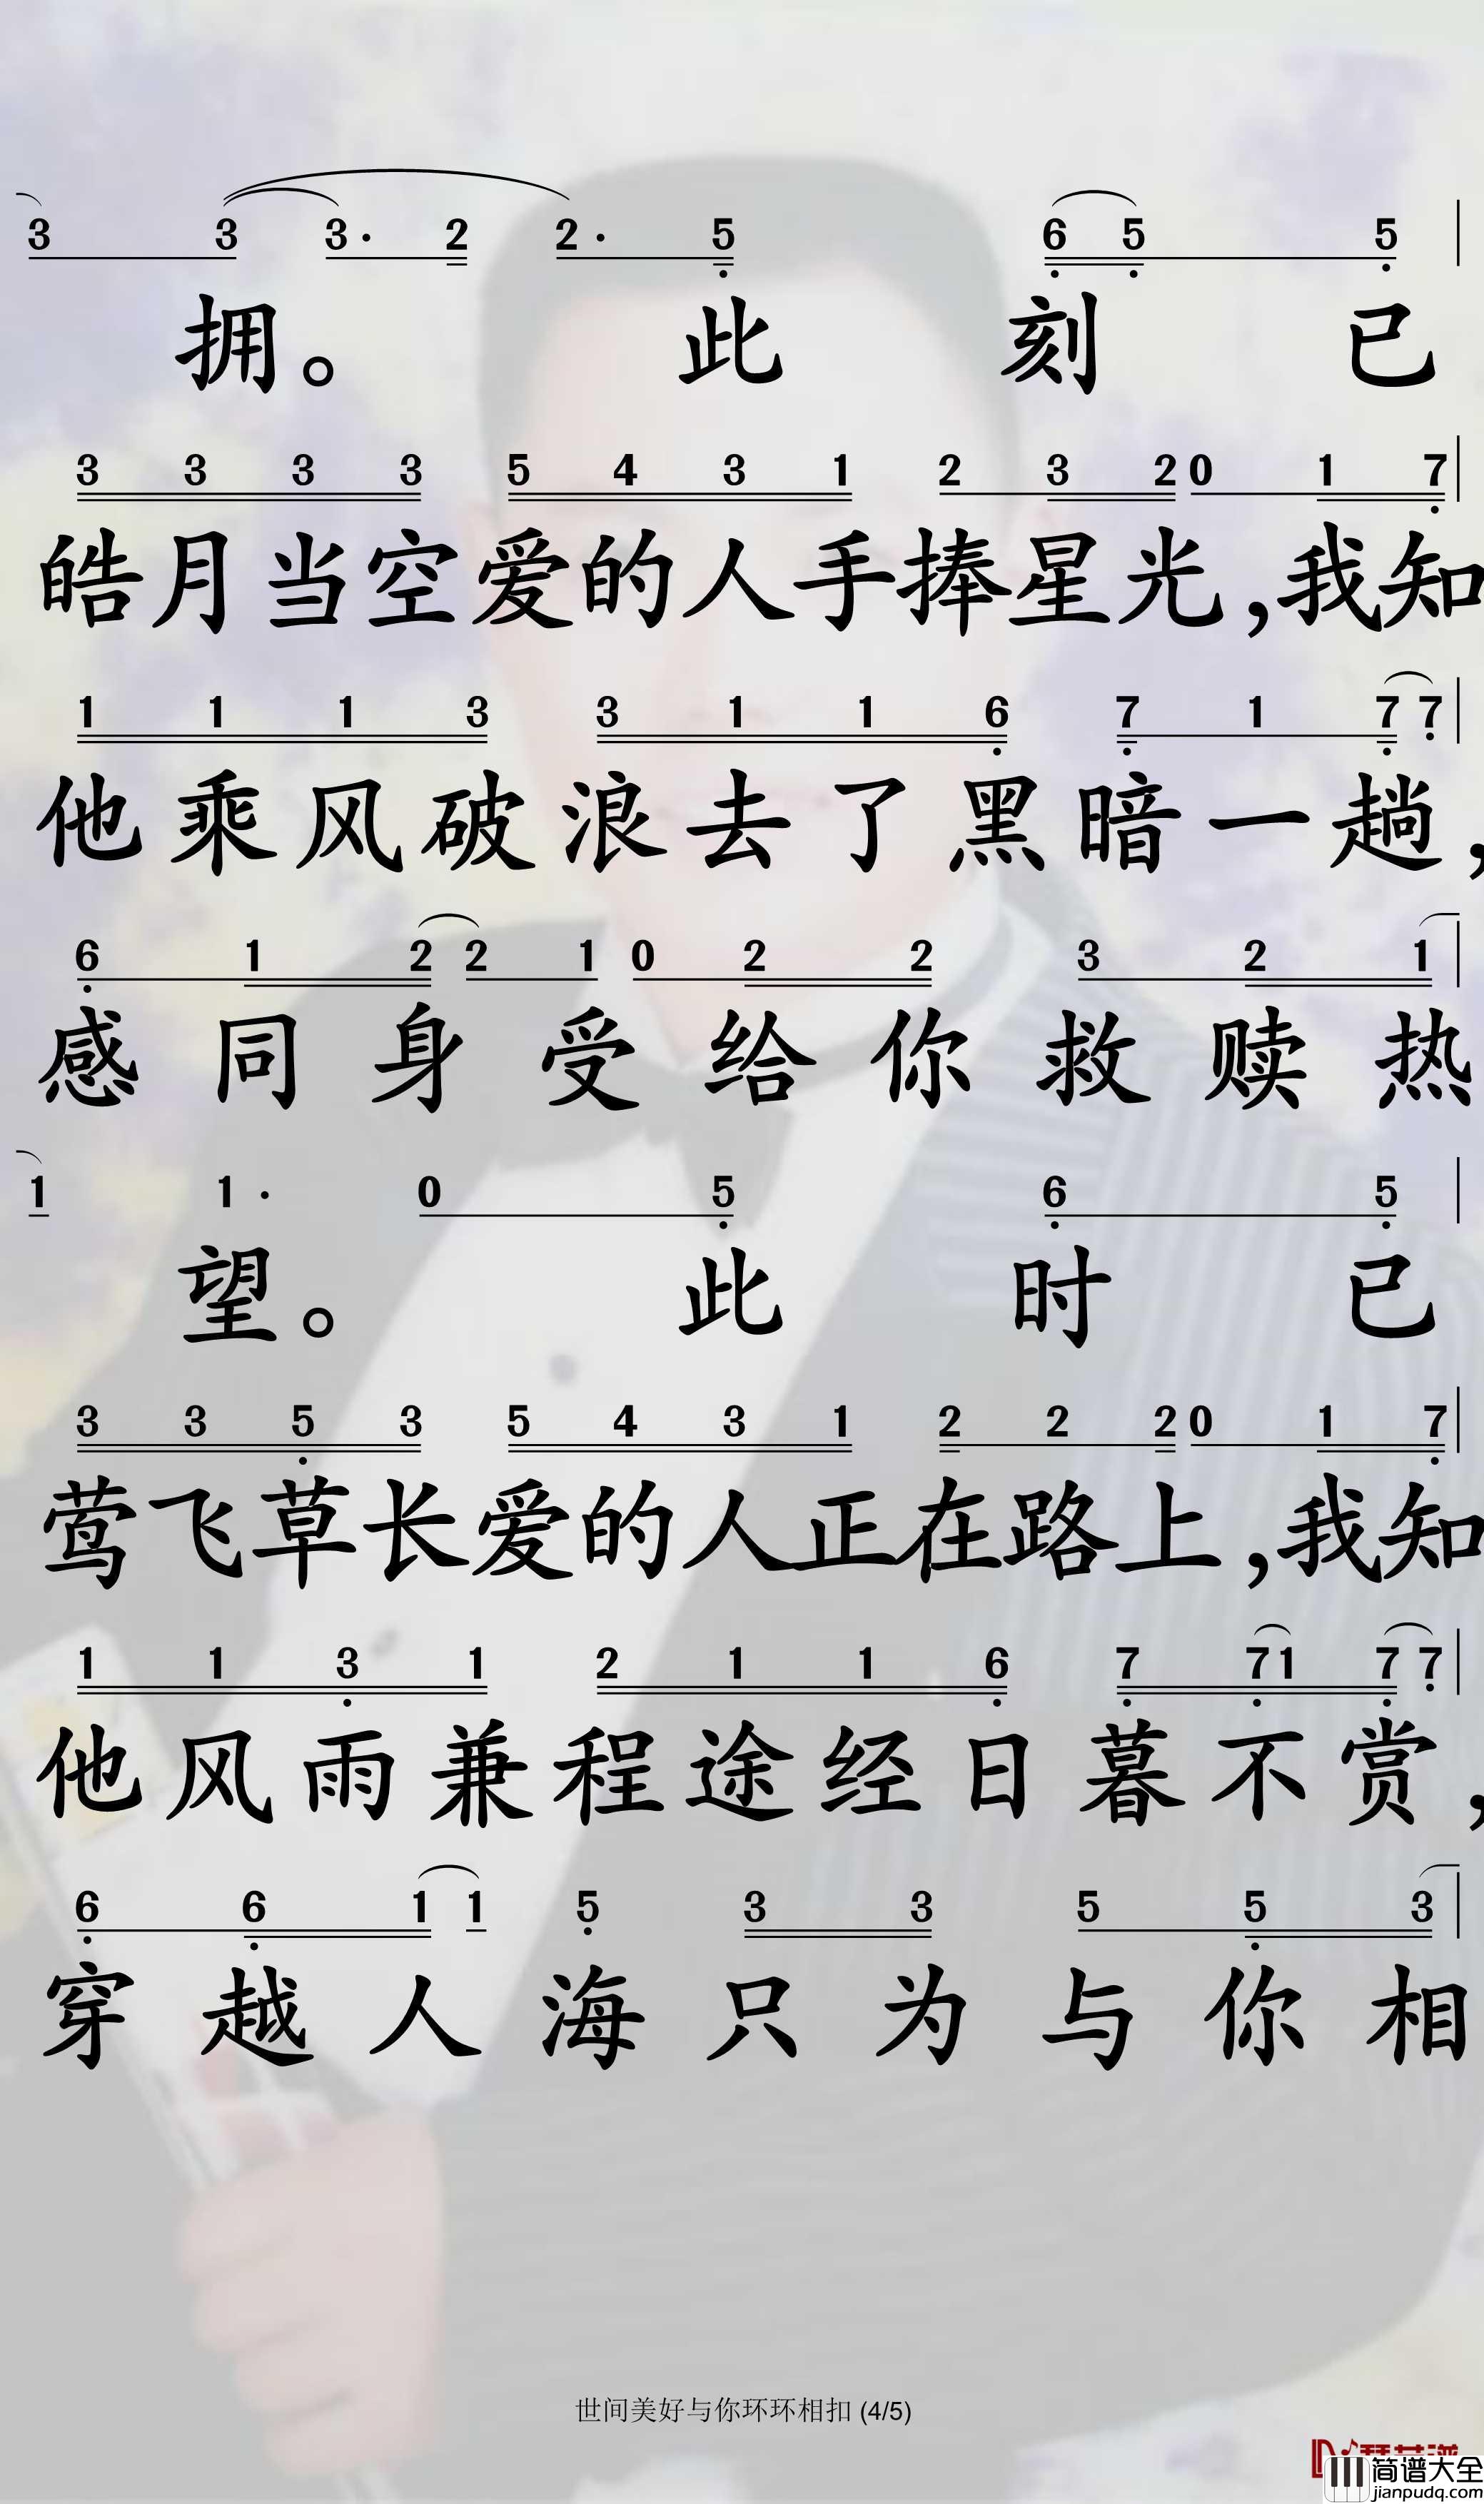 3 3 3· 2 2· 5 6 5 5
拥。 此 刻 已
3 3 3 3 5 4 3 1 2 3 2 0 1 7
皓月当空爱的人手捧星光,我知
1 1 1 3 3 1 1 6 7 1 7 7
他乘风破浪去了黑暗一趟,
6 1 2 2 1 0 2 2 3 2 1
感同身受给你救赎热
1 1· 0 5 6 5
望。 此 时 已
3 3 5 3 5 4 3 1 2 2 2 0 1 7
莺飞草长爱的人正在路上,我知
1 1 3 1 2 1 1 6 7 7 1 7 7
他风雨兼程途经日暮不赏,
6 6 1 1 5 3 3 5 5 3
穿越人海只为与你相
世间美好与你环环相扣 (4/5)
简谱大全
jianpudq.com